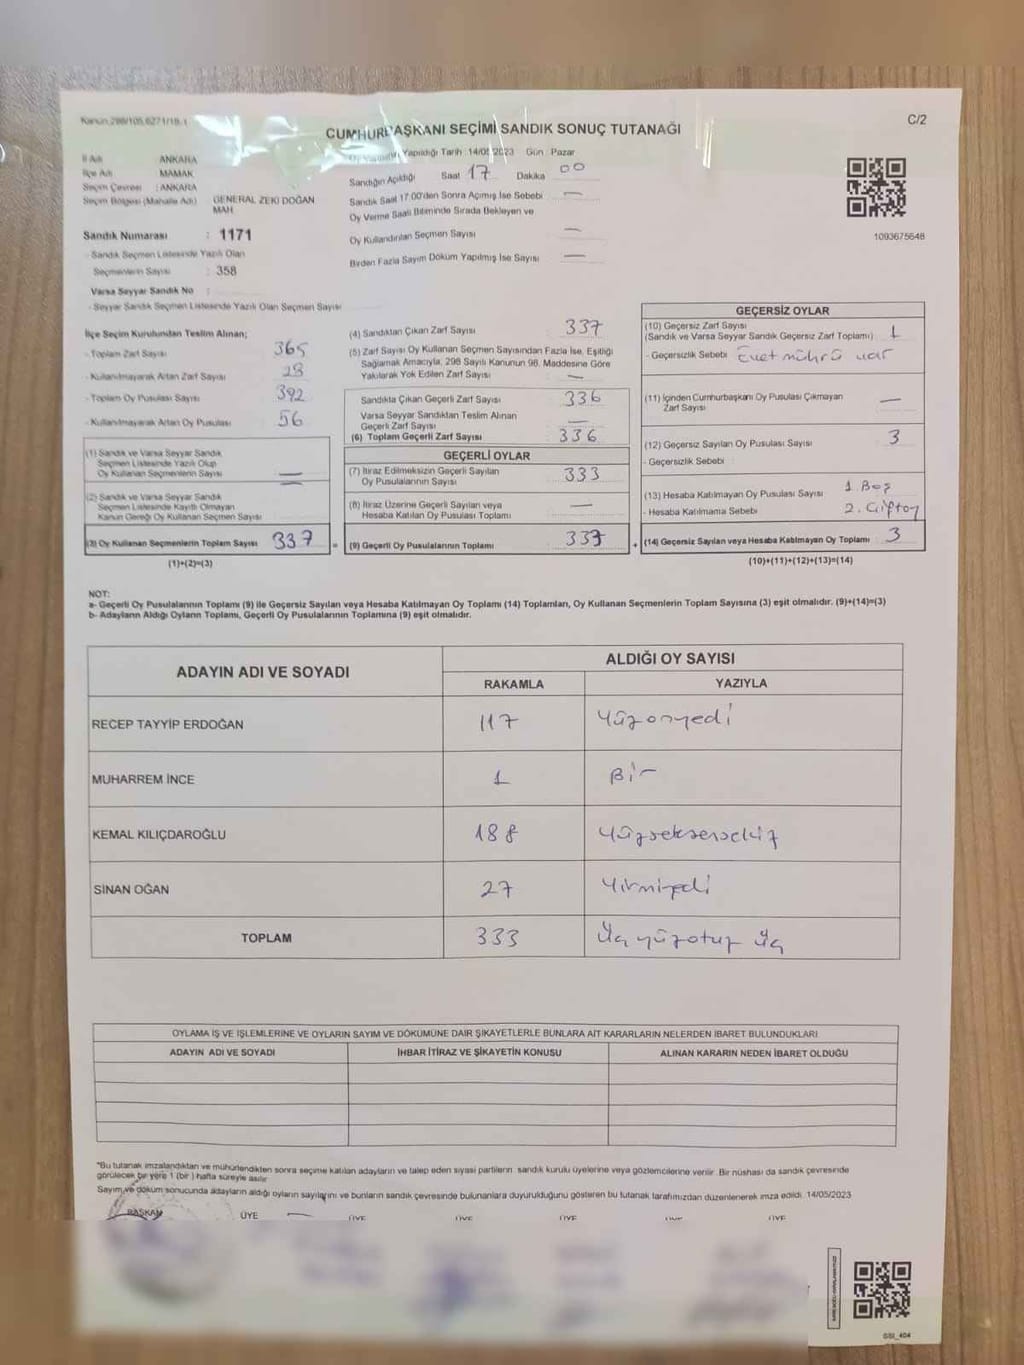 Kanun:298/105,6271/19-1
C/2
CUMHURBAŞKANI SEÇİMİ SANDIK SONUÇ TUTANAĞI
Yapıldığı Tarih :14/05/2023 Gün Pazar
İl Adı ANKARA
İlçe Adı MAMAK
Seçim Çevresi : ANKARA
Seçim Bölgesi (Mahalle Adı) GENERAL ZEKİ DOĞAN MAH
Sandık Numarası : 1171
- Sandık Seçmen Listesinde Yazılı Olan
Seçmenlerin Sayısı : 358
Varsa Seyyar Sandık No :
- Seyyar Sandık Seçmen Listesinde Yazılı Olan Seçmen Sayısı
Sandığın Açıldığı Saat 17 Dakika 00
Sandık Saat 17:00'den Sonra Açımış İse Sebebi —
Oy Verme Saati Bitiminde Sırada Bekleyen ve
Oy Kullandırılan Seçmen Sayısı —
Birden Fazla Sayım Döküm Yapılmış İse Sayısı —
1093675648
İlçe Seçim Kurulundan Teslim Alınan;
- Toplam Zarf Sayısı 365
- Kullanılmayarak Artan Zarf Sayısı 28
- Toplam Oy Pusulası Sayısı 392
- Kullanılmayarak Artan Oy Pusulası 56
(1) Sandık ve Varsa Seyyar Sandık
Seçmen Listesinde Yazılı Olup
Oy Kullanan Seçmenlerin Sayısı —
(2) Sandık ve Varsa Seyyar Sandık
Seçmen Listesinde Kayıtlı Olmayan
Kanun Gereği Oy Kullanan Seçmen Sayısı —
(3) Oy Kullanan Seçmenlerin Toplam Sayısı 337
(1)+(2)=(3)
(4) Sandıktan Çıkan Zarf Sayısı 337
(5) Zarf Sayısı Oy Kullanan Seçmen Sayısından Fazla İse, Eşitliği
Sağlamak Amacıyla, 298 Sayılı Kanunun 98. Maddesine Göre
Yakılarak Yok Edilen Zarf Sayısı —
Sandıkta Çıkan Geçerli Zarf Sayısı 336
Varsa Seyyar Sandıktan Teslim Alınan
Geçerli Zarf Sayısı —
(6) Toplam Geçerli Zarf Sayısı 336
GEÇERLİ OYLAR
(7) İtiraz Edilmeksizin Geçerli Sayılan
Oy Pusulalarının Sayısı 333
(8) İtiraz Üzerine Geçerli Sayılan veya
Hesaba Katılan Oy Pusulası Toplamı —
= (9) Geçerli Oy Pusulalarının Toplamı 333
GEÇERSİZ OYLAR
(10) Geçersiz Zarf Sayısı
(Sandık ve Varsa Seyyar Sandık Geçersiz Zarf Toplamı) 1
- Geçersizlik Sebebi Evet mührü var
(11) İçinden Cumhurbaşkanı Oy Pusulası Çıkmayan
Zarf Sayısı —
(12) Geçersiz Sayılan Oy Pusulası Sayısı 3
- Geçersizlik Sebebi :
(13) Hesaba Katılmayan Oy Pusulası Sayısı 1. Boş
- Hesaba Katılmama Sebebi 2. Çift oy
+ (14) Geçersiz Sayılan veya Hesaba Katılmayan Oy Toplamı 3
(10)+(11)+(12)+(13)=(14)
NOT:
a- Geçerli Oy Pusulalarının Toplamı (9) ile Geçersiz Sayılan veya Hesaba Katılmayan Oy Toplamı (14) Toplamları, Oy Kullanan Seçmenlerin Toplam Sayısına (3) eşit olmalıdır. (9)+(14)=(3)
b- Adayların Aldığı Oyların Toplamı, Geçerli Oy Pusulalarının Toplamına (9) eşit olmalıdır.
ADAYIN ADI VE SOYADI ALDIĞI OY SAYISI
RAKAMLA YAZIYLA
RECEP TAYYİP ERDOĞAN 117 Yüzonyedi
MUHARREM İNCE 1 Bir
KEMAL KILIÇDAROĞLU 188 Yüzseksensekiz
SİNAN OĞAN 27 Yirmiyedi
TOPLAM 333 Üç yüzotuz üç
OYLAMA İŞ VE İŞLEMLERİNE VE OYLARIN SAYIM VE DÖKÜMÜNE DAİR ŞİKAYETLERLE BUNLARA AİT KARARLARIN NELERDEN İBARET BULUNDUKLARI
ADAYIN ADI VE SOYADI İHBAR İTİRAZ VE ŞİKAYETİN KONUSU ALINAN KARARIN NEDEN İBARET OLDUĞU
*Bu tutanak imzalandıktan ve mühürlendikten sonra seçime katılan adayların ve talep eden siyasi partilerin sandık kurulu üyelerine veya gözlemcilerine verilir. Bir nüshası da sandık çevresinde
görülecek bir yere 1 (bir ) hafta süreyle asılır.
Sayım ve döküm sonucunda adayların aldığı oyların sayılarını ve bunların sandık çevresinde bulunanlara duyurulduğunu gösteren bu tutanak tarafımızdan düzenlenerek imza edildi. 14/05/2023
BAŞKAN ÜYE ÜYE ÜYE ÜYE ÜYE ÜYE
GSI_404